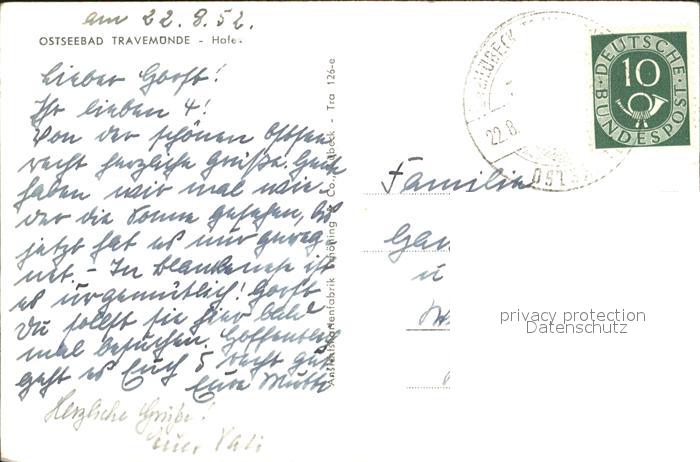 am 22.8.52.
OSTSEEBAD TRAVEMÜNDE - Hafen
Lieber Horst!
Ihr lieben 4!
Von der schönen Ostsee
recht herzliche Grüße. Heute
haben wir mal wie-
der die Sonne gesehen, bis
jetzt hat es nur gereg-
net. - In Blankenese ist
es urgemütlich! Horst
Du sollst sie hier bald
mal besuchen. Hoffentlich
geht es Euch 5 recht gut
Eure Mutti
Herzliche Grüße!
Euer Vati
Ansichtskartenfabrik Schöning & Co., Lübeck - Tra 126-e
LÜBECK
22.8.
OSTSEE
DEUTSCHE
BUNDESPOST
10
Familie
privacy protection
Datenschutz